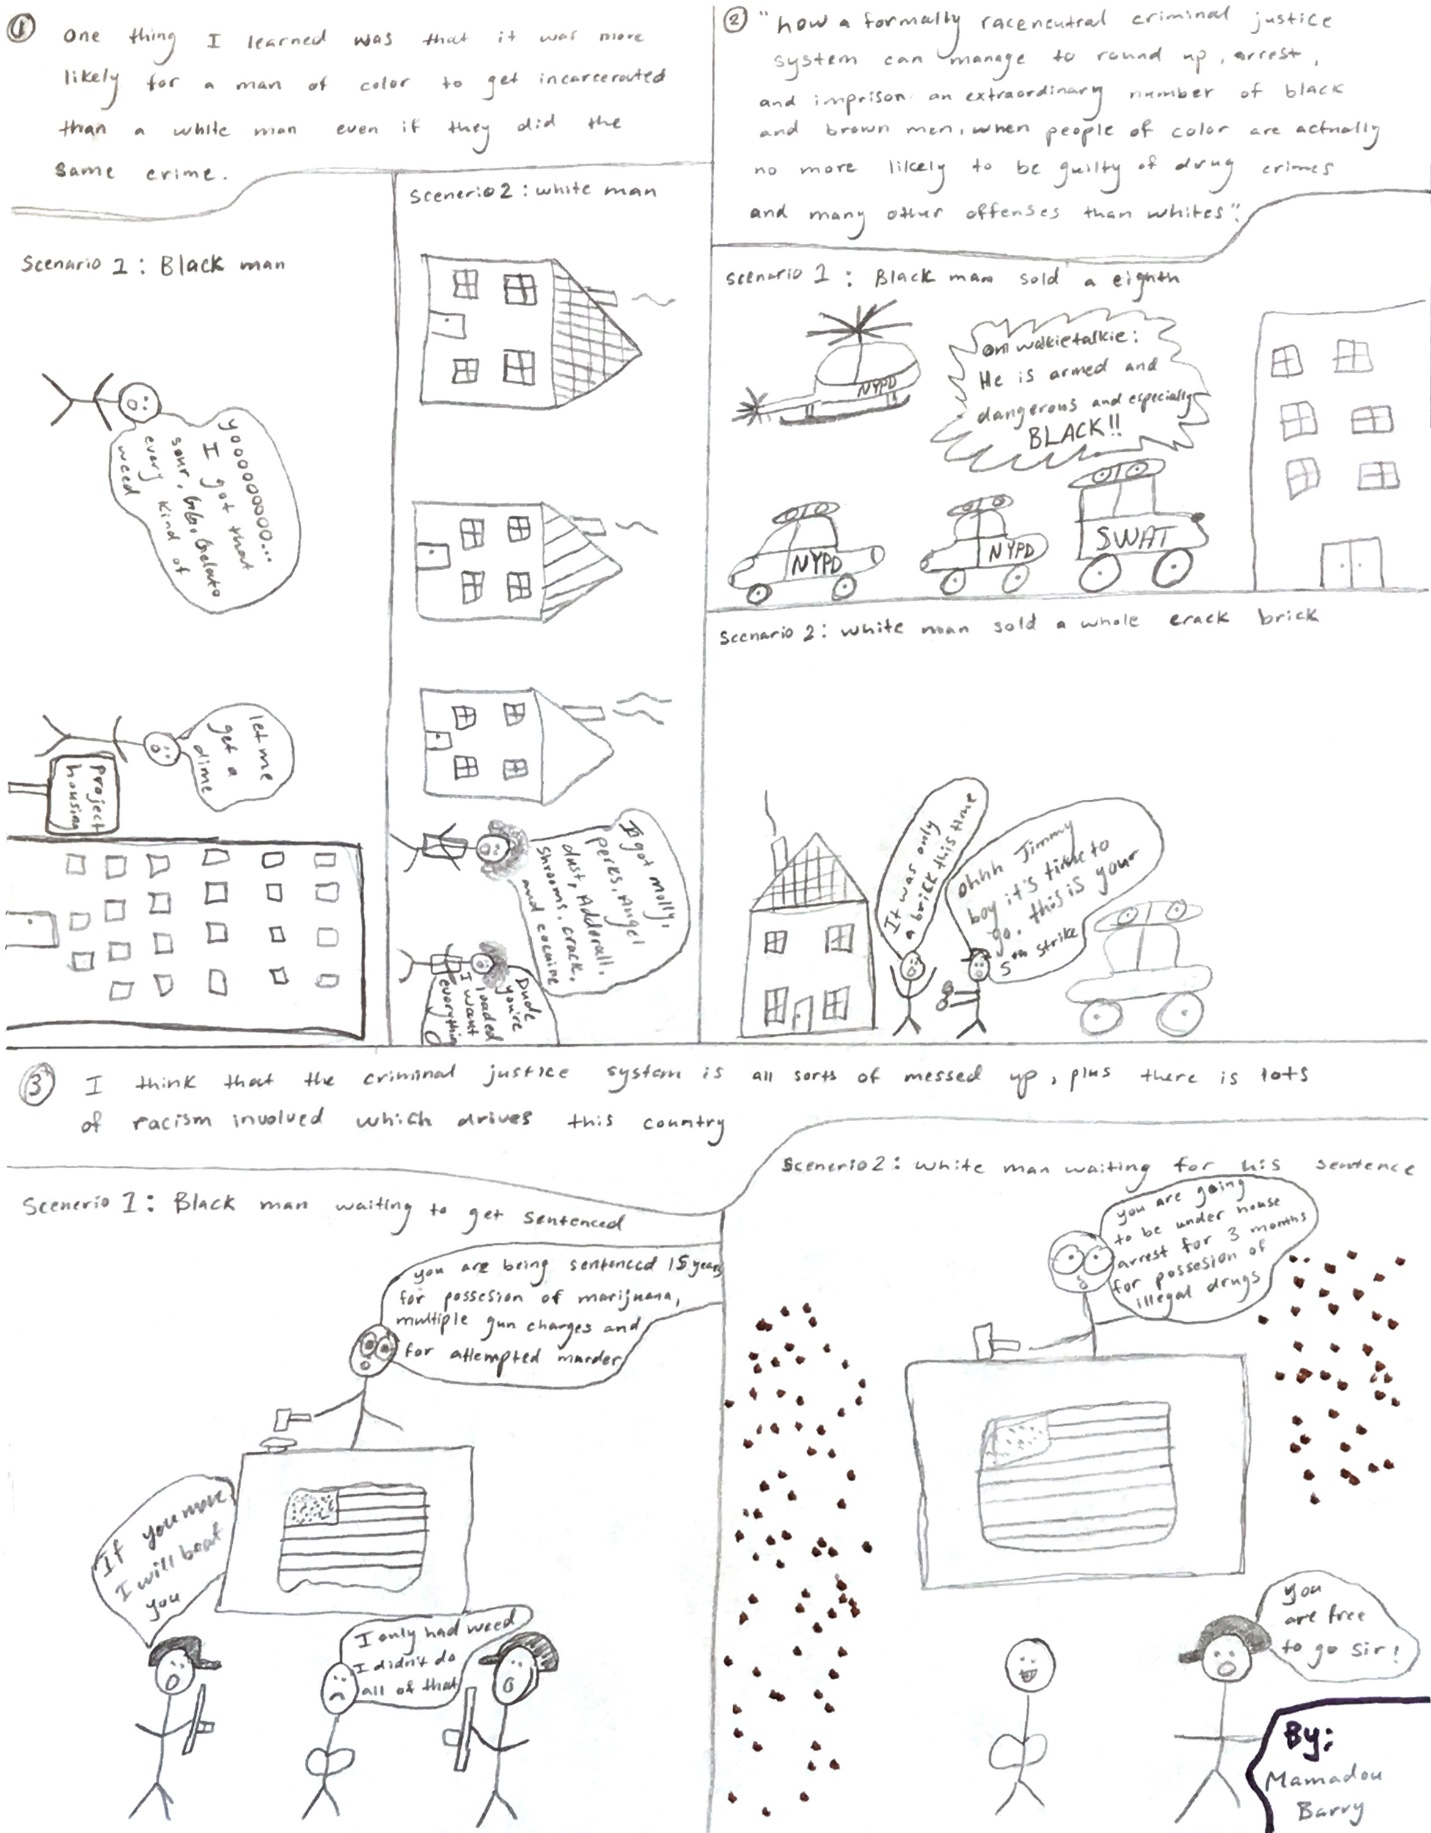 ① One thing I learned was that it was more
likely for a man of color to get incarcerated
than a white man even if they did the
same crime.
Scenario 1: Black man
yooooooooo...
I got that
sour, Gelato
every kind of
weed
let me
get a
dime
project
housing
Scenerio 2: white man
I got molly,
perks, Angel
dust, Adderall,
shrooms, crack,
and cocaine
Dude
you're
loaded
I want
everything
② "how a formally raceneutral criminal justice
system can manage to round up, arrest,
and imprison an extraordinary number of black
and brown men, when people of color are actually
no more likely to be guilty of drug crimes
and many other offenses than whites".
Scenario 1: Black man sold a eighth
on walkietalkie:
He is armed and
dangerous and especially
BLACK!!
NYPD
NYPD
NYPD
SWAT
Scenario 2: white man sold a whole crack brick
It was only
a brick this time
ohhh Jimmy
boy it's time to
go, this is your
5th strike
③ I think that the criminal justice system is all sorts of messed up, plus there is lots
of racism involved which drives this country
Scenerio 1: Black man waiting to get sentenced
you are being sentenced 15 years
for possesion of marijuana,
multiple gun charges and
for attempted murder
If you move
I will beat
you
I only had weed
I didn't do
all of that
Scenerio 2: white man waiting for his sentence
you are going
to be under house
arrest for 3 months
for possesion of
illegal drugs
you
are free
to go sir!
By:
Mamadou
Barry